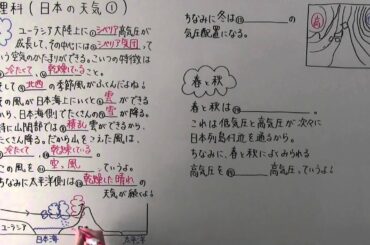 理科(日本の天気①)
ユーラシア大陸上に①シベリア高気圧が
成長して、その中には②シベリア気団って
いう空気のかたまりができる。こいつの特徴は
冷たくて、乾燥していること
して⑤北西の季節風がふくんだよね!
風が日本海上にいくと⑥雲ができる
から、日本海側でたくさんの⑦雪が降る。
特に山間部では⑧積乱雲ができるから、
たくさん降る。だから山をこえた風は、
冷たくて、乾燥している。
この風を
空っ風っていうよ。
ちなみに太平洋側は⑫乾燥した晴れの
天気が続くよ!
ユーラシア
日本海
太平洋
ちなみに冬は⑬
の
気圧配置になる。
高
春と秋
春と秋は⑭
。
これは低気圧と高気圧が次々に
日本列島付近を通るから。
ちなみに、春と秋によくみられる
高気圧を⑮
高気圧、っていうよ!